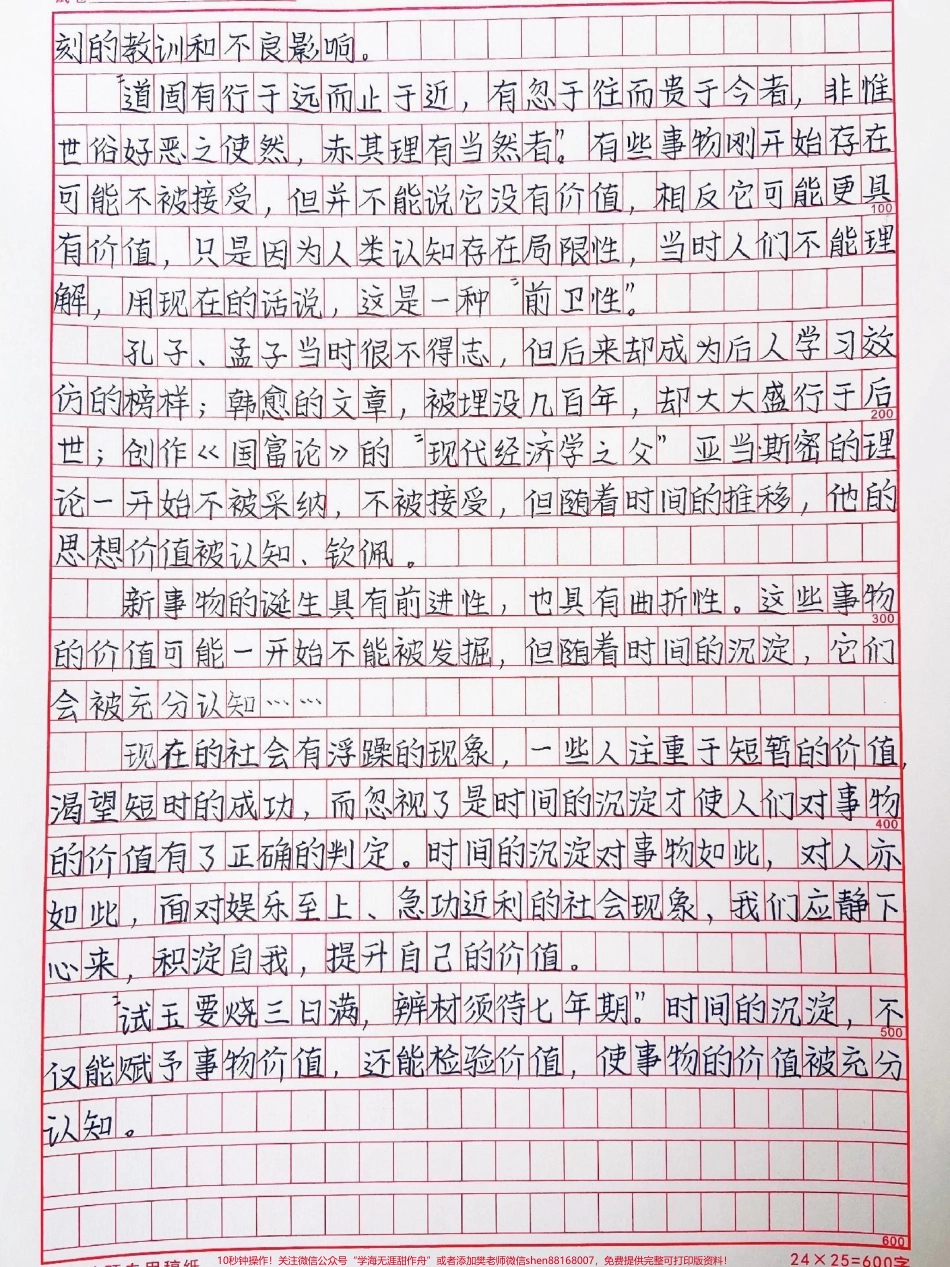 刻的教训和不良影响。
“道固有行于远而止于近，有忽于往而贵于今者，非惟
世俗好恶之使然，赤其理有当然者”。有些事物刚开始存在
可能不被接受，但并不能说它没有价值，相反它可能更具
100
有价值，只是因为人类认知存在局限性，当时人们不能理
解，用现在的话说，这是一种“前卫性”。
孔子、孟子当时很不得志，但后来却成为后人学习效
仿的榜样；韩愈的文章，被埋没几百年，却大大盛行于后
200
世；创作《国富论》的“现代经济学之父”亚当斯密的理
论一开始不被采纳，不被接受，但随着时间的推移，他的
思想价值被认知、钦佩。
新事物的诞生具有前进性，也具有曲折性。这些事物
300
的价值可能一开始不能被发掘，但随着时间的沉淀，它们
会被充分认知……
现在的社会有浮躁的现象，一些人注重于短暂的价值，
渴望短时的成功，而忽视了是时间的沉淀才使人们对事物
400
的价值有了正确的判定。时间的沉淀对事物如此，对人亦
如此，面对娱乐至上、急功近利的社会现象，我们应静下
心来，积淀自我，提升自己的价值。
“试玉要烧三日满，辨材须待七年期。”时间的沉淀，不
500
仅能赋予事物价值，还能检验价值，使事物的价值被充分
认知。
600
10秒钟操作！关注微信公众号“学海无涯甜作舟”或者添加樊老师微信shen88168007，免费提供完整可打印版资料！
24×25=600字